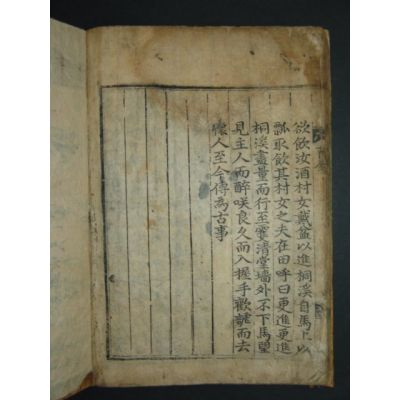 欲飲汝酒村女戴盆以進桐溪自馬上以
瓢取飲其村女之夫在田呼曰更進更進
桐溪盡量而行至霽清堂墻外不下馬望
見主人而醉咲良久而入握手歡謔而去
人至今傳為古事